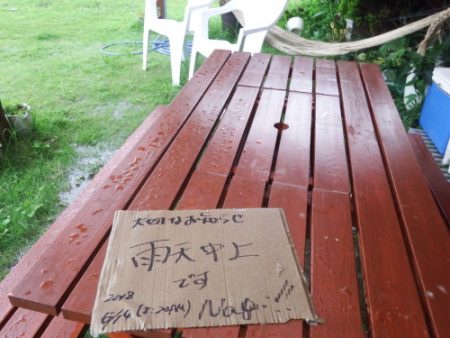 大切なお知らせ
雨天中止
です
2018
6/14 (2:30PM)